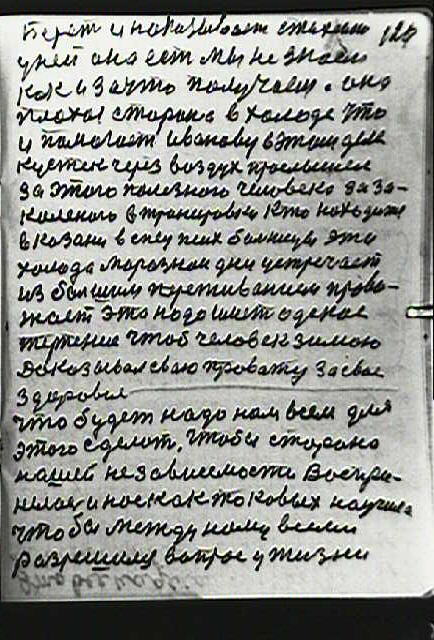 Берет и показывает стихию 127
у ней она ест мы не знаем
как и за что получаем. она
плохая сторона в холоде что
и помогает Иванову в этом деле
кустек через воздух прослышел
за этого полезного человека за за-
каленого в тренировки кто находится
в казани в спец псих больнице это
холода морозном дни устречает
из большим преживанием прово-
жает это надо имет одскае
терпение чтоб человек зимою
доказывал сваю правату за свае
здоровья
что будет надо нам всем для
этого сделот, чтобы сторона
нашей независемости Воспри-
нелас и нас как таковых научила
чтобы между наму всеми
разрешился вопрос у жизни